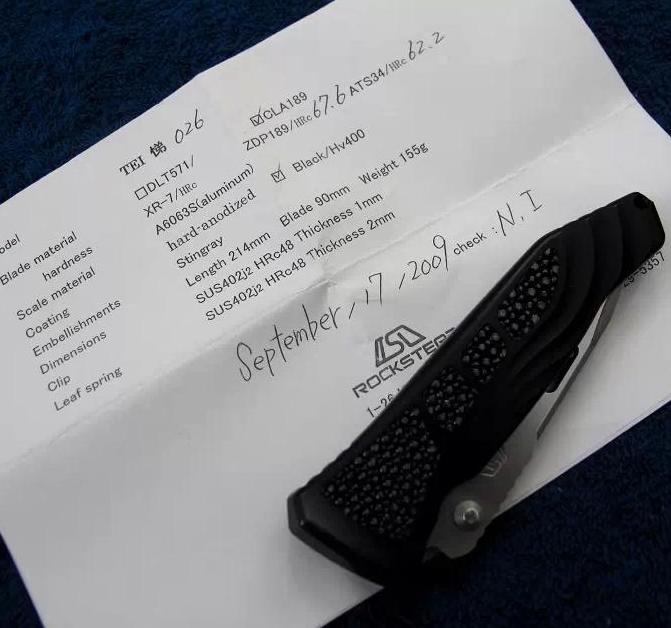 TEI 悌 026
□DLT571/ ☑CLA189
XR-7/HRc ZDP189/HRc 67.6 ATS34/HRc 62.2
Blade material
hardness
Scale material A6063S(aluminum)
Coating hard-anodized ☑ Black/Hv400
Embellishments Stingray
Dimensions Length 214mm Blade 90mm Weight 155g
Clip SUS402j2 HRc48 Thickness 1mm
Leaf spring SUS402j2 HRc48 Thickness 2mm
September, 17, 2009 check : N. I